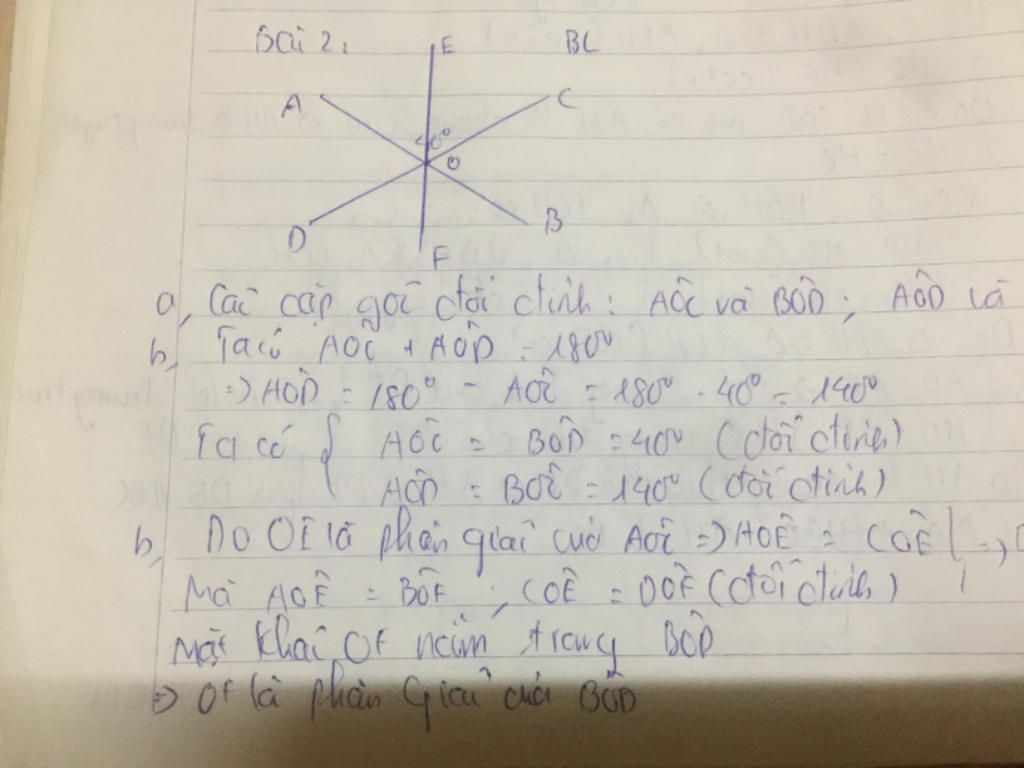 Bài 2:
E
BC
A
C
40°
O
D
B
F
a, Các cặp góc đối đỉnh: AÔC và BÔD; AÔD và
b, Ta có AÔC + AÔD = 180°
=> AÔD = 180° - AÔC = 180° - 40° = 140°
Ta có { AÔC = BÔD = 40° (đối đỉnh)
AÔD = BÔC = 140° (đối đỉnh)
b, Do OE là phân giác của AÔC => AOÊ = COÊ
Mà AOÊ = BÔF ; COÊ = DOF̂ (đối đỉnh)
Mặt khác OF nằm trong BÔD
=> OF là phân giác của BÔD